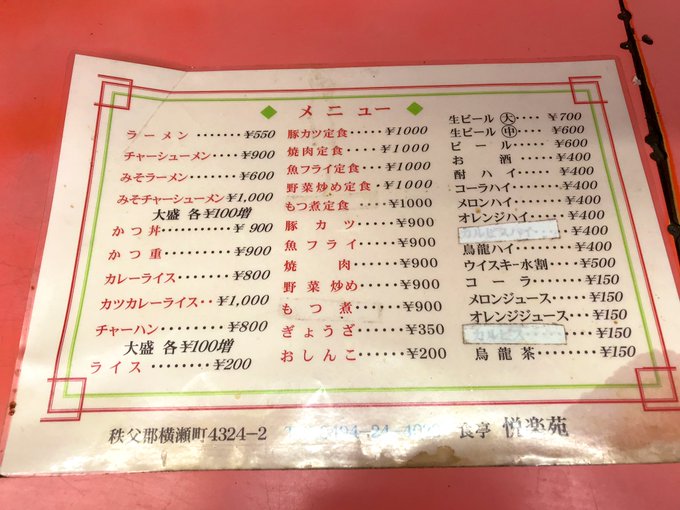 メニュー
ラーメン ・・・・・・・ ¥550
チャーシューメン ・・・・ ¥900
みそラーメン ・・・・・ ¥600
みそチャーシューメン ¥1,000
大盛 各 ¥100増
かつ丼 ・・・・・・・・ ¥900
かつ重 ・・・・・・・・ ¥900
カレーライス ・・・・・ ¥800
カツカレーライス ・・ ¥1,000
チャーハン ・・・・・・ ¥800
大盛 各 ¥100増
ライス ・・・・・・・・ ¥200
豚カツ定食 ・・・・・ ¥1000
焼肉定食 ・・・・・・ ¥1000
魚フライ定食 ・・・・ ¥1000
野菜炒め定食 ・・・・ ¥1000
もつ煮定食 ・・・・・ ¥1000
豚カツ ・・・・・・ ¥900
魚フライ ・・・・・ ¥900
焼肉 ・・・・・・・ ¥900
野菜炒め ・・・・・ ¥900
もつ煮 ・・・・・・ ¥900
ぎょうざ ・・・・・ ¥350
おしんこ ・・・・・・・ ¥200
生ビール 大 ・・・・ ¥700
生ビール 中 ・・・・ ¥600
ビール ・・・・・・ ¥600
お酒 ・・・・・・・ ¥400
酎ハイ ・・・・・・ ¥400
コーラハイ ・・・・ ¥400
メロンハイ ・・・・ ¥400
オレンジハイ ・・・ ¥400
カルピスハイ ・・・ ¥400
烏龍ハイ ・・・・・ ¥400
ウイスキー水割 ・・・ ¥500
コーラ ・・・・・・ ¥150
メロンジュース ・・・ ¥150
オレンジジュース ・・・ ¥150
カルピス ・・・・・ ¥150
烏龍茶 ・・・・・・ ¥150
秩父郡横瀬町4324-2 食亭 悦楽苑